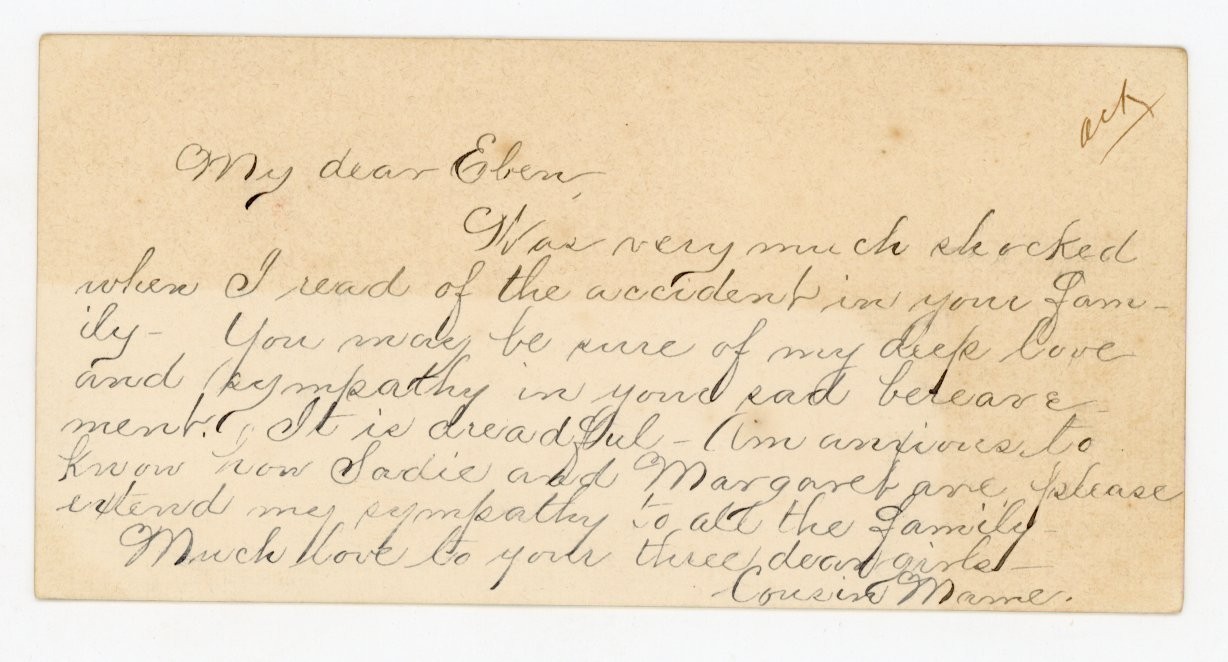 ack
My dear Eben,
Was very much shocked
when I read of the accident in your fam-
ily- You may be sure of my deep love
and sympathy in your sad bereave-
ment. It is dreadful - Am anxious to
know how Sadie and Margaret are, please
extend my sympathy to all the family-
Much love to your three dear girls-
Cousin Mame.